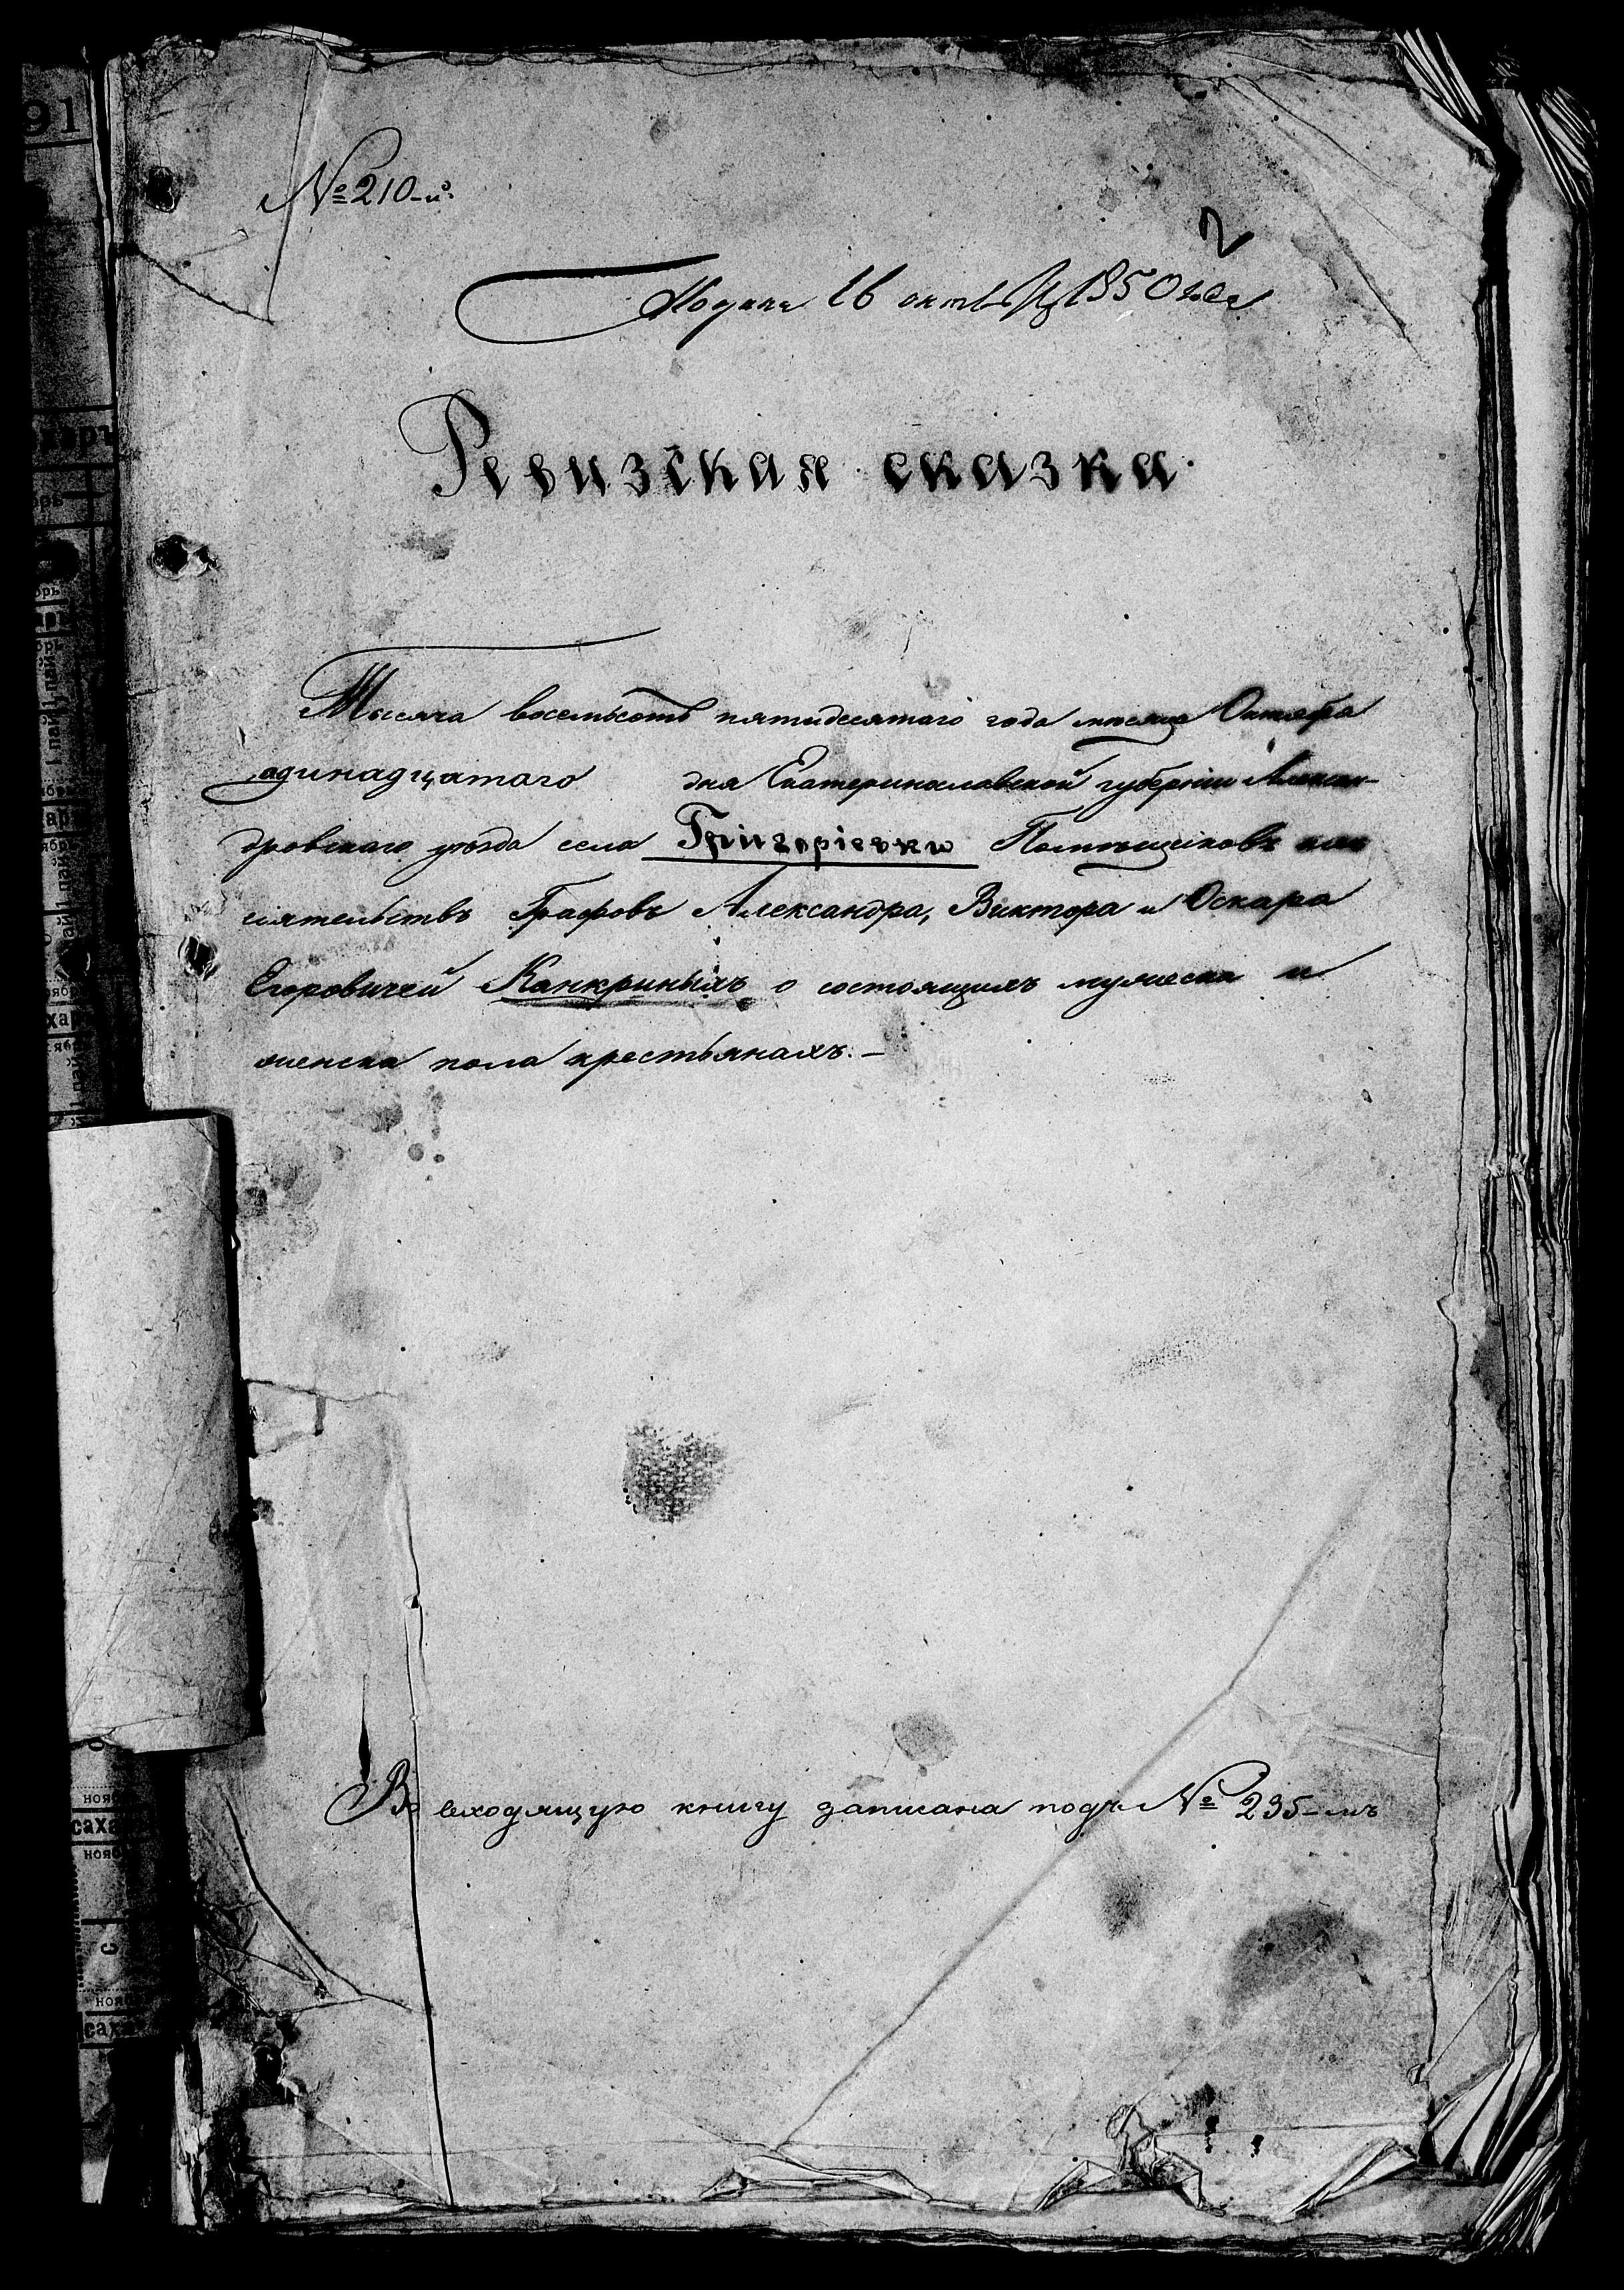 № 210-й.
2
Подана 16 октября 1850 года
Ревизская сказка.
Тысяча восемьсотъ пятидесятаго года месяца Октября
одинадцатаго дня Екатеринославской губерніи Алексан-
дровскаго уѣзда села Григоріевки Помѣщиковъ ихъ
сіятельствъ Графовъ Александра, Виктора и Оскара
Егоровичей Канкриныхъ о состоящихъ мужеска и
женска пола крестьянахъ. —
Во входящую книгу записана подъ № 235-мъ
91